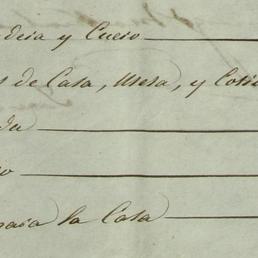 deia y Cuero
s de Casa, Mesa, y Coci
da
io
para la Casa